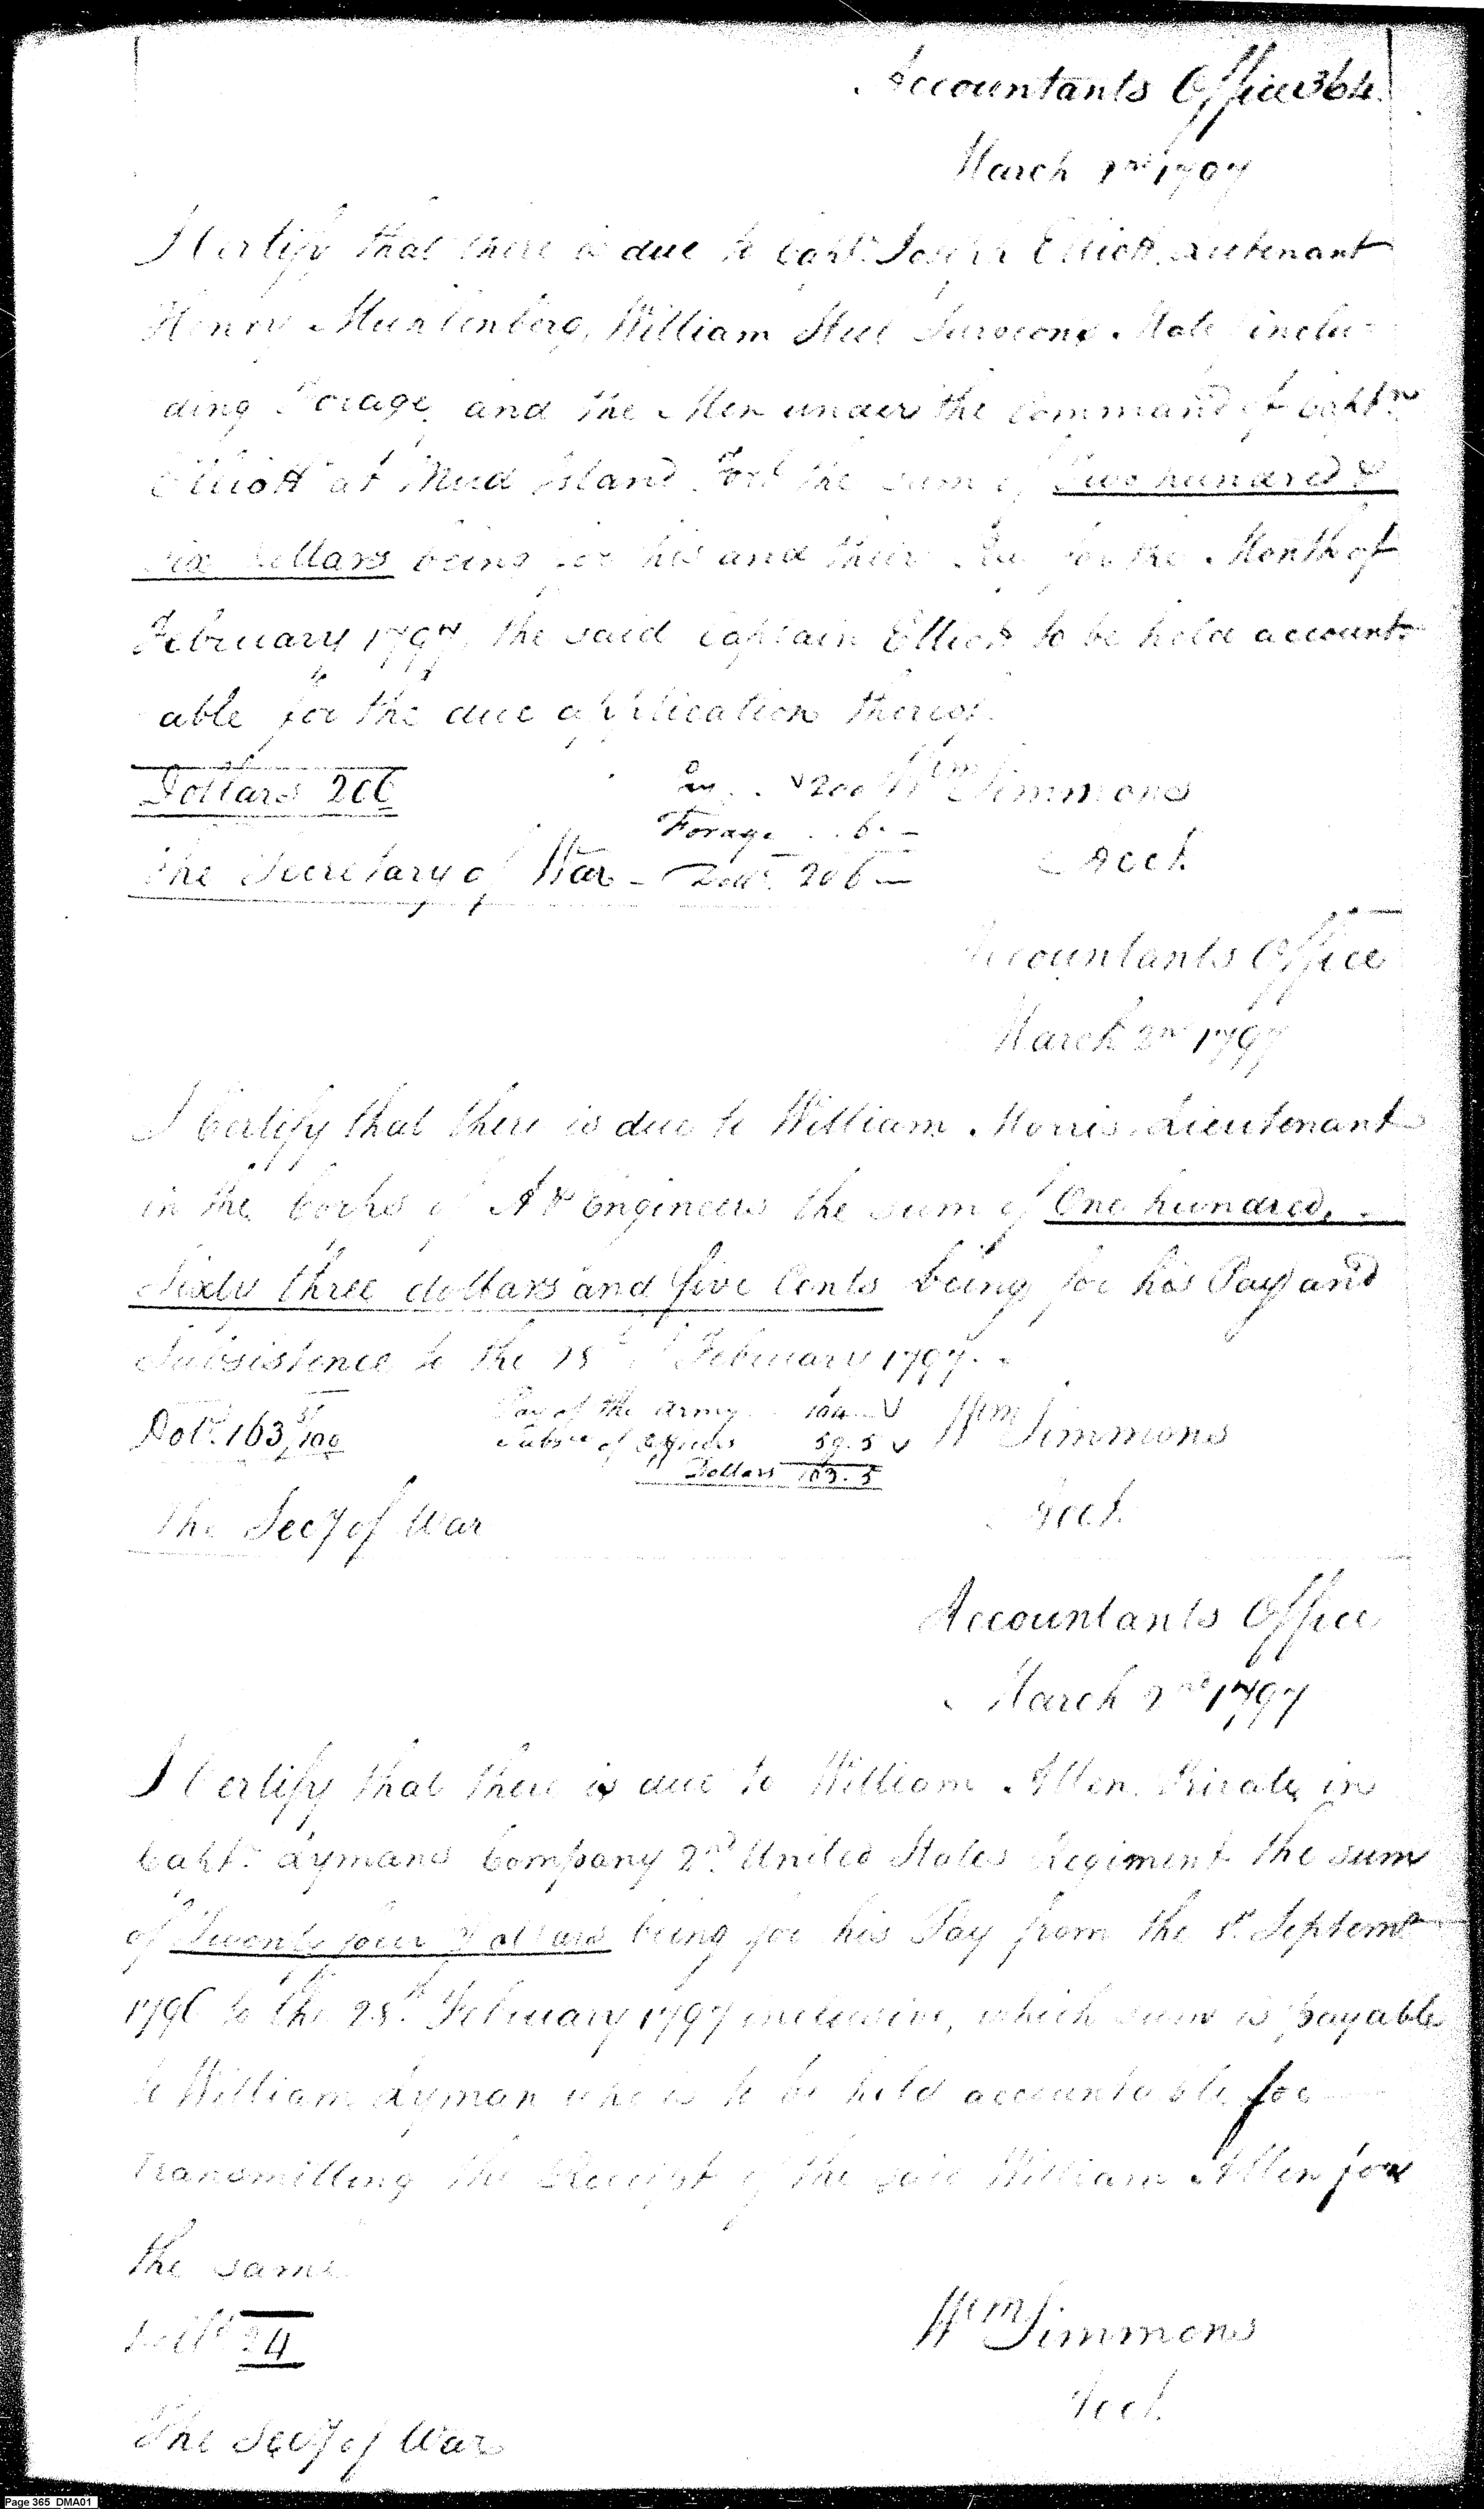 Accountants Office 364.
March 2nd 1797
I Certify that there is due to Capt. Joseph Elliott, Lieutenant
Henry Muhlenberg, William Steel Surgeons Mate inclu-
ding Forage, and the Men under the command of Captn
Elliott at Mud Island Fort the sum of Two hundred &
six Dollars being for his and their Pay for the Month of
February 1797, the said Captain Elliott to be held account-
able for the due application thereof.
Dollars 206
Pay . . 200
Wm Simmons
Forage . . 6. —
The Secretary of War — Dolls. 206 —
Acct.
Accountants Office
March 2nd 1797
I Certify that there is due to William Morris Lieutenant
in the Corps of A & Engineers the sum of One hundred,
Sixty three dollars and five Cents being for his Pay and
Subsistence to the 28th of February 1797.
Pay of the Army 104
Dolls. 163 5/100
Wm Simmons
Subsce of Officers 59.5
Dollars 163.5
The Secy of War
Acct.
Accountants Office
March 2nd 1797
I Certify that there is due to William Allen Private in
Capt. Lymans Company 2nd United States Regiment the sum
of Twenty four Dollars being for his Pay from the 1st Septemr
1796 to the 28th February 1797 inclusive, which sum is payable
to William Lyman who is to be held accountable for
transmitting the Receipt of the said William Allen for
the same
Dolls 24
Wm Simmons
Acct.
The Secy of War
Page 365 DMA01